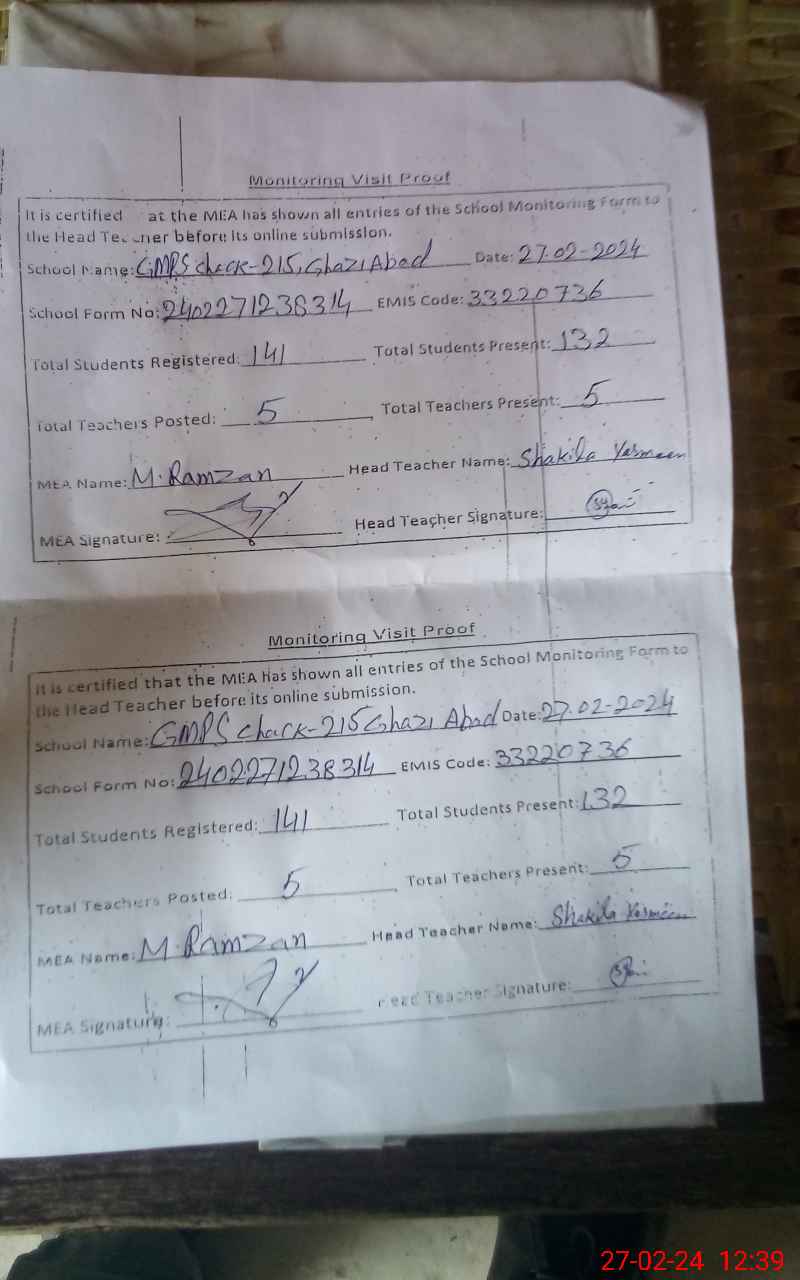 Monitoring Visit Proof
It is certified at the MEA has shown all entries of the School Monitoring Form to
the Head Teacher before its online submission.
School Name: GMPS chack-215, Ghazi Abad Date: 27.02-2024
School Form No: 2402271238314 EMIS Code: 33220736
Total Students Registered: 141 Total Students Present: 132
Total Teachers Posted: 5 Total Teachers Present: 5
MEA Name: M. Ramzan Head Teacher Name: Shakila Yasmeen
MEA Signature: Head Teacher Signature:
Monitoring Visit Proof
It is certified that the MEA has shown all entries of the School Monitoring Form to
the Head Teacher before its online submission.
School Name: GMPS chack-215 Ghazi Abad Date: 27.02-2024
School Form No: 2402271238314 EMIS Code: 33220736
Total Students Registered: 141 Total Students Present: 132
Total Teachers Posted: 5 Total Teachers Present: 5
MEA Name: M. Ramzan Head Teacher Name: Shakila Yasmeen
MEA Signature: Head Teacher Signature:
27-02-24 12:39